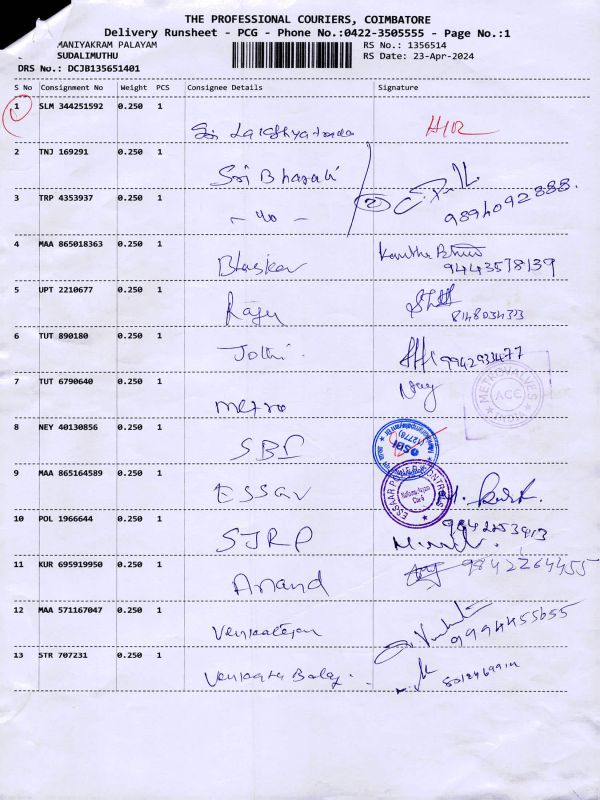 THE PROFESSIONAL COURIERS, COIMBATORE
Delivery Runsheet - PCG - Phone No.:0422-3505555 - Page No.:1
MANIYAKRAM PALAYAM RS No.: 1356514
SUDALIMUTHU RS Date: 23-Apr-2024
DRS No.: DCJB135651401
S No Consignment No Weight PCS Consignee Details Signature
1 SLM 344251592 0.250 1
Sri
2 TNJ 169291 0.250 1
Sri Bharati
3 TRP 4353937 0.250 1
2 9894092888.
4 MAA 865018363 0.250 1
Bhaskar 9443578139
5 UPT 2210677 0.250 1
Raju
6 TUT 890180 0.250 1
Jothi 9942933477
7 TUT 6790640 0.250 1
metro METRO VALVES ACC
8 NEY 40130856 0.250 1
SBI SBI (12778)
9 MAA 865164589 0.250 1
ESSAR
10 POL 1966644 0.250 1
STRP 9842253913
11 KUR 695919950 0.250 1
Anand 9842264455
12 MAA 571167047 0.250 1
Venkatesan 9994455655
13 STR 707231 0.250 1
Balaj